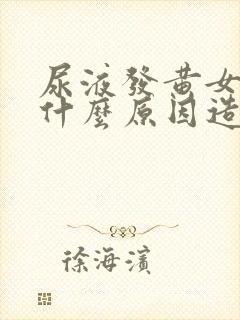 尿液發黃女
什麼原因造
徐海濱